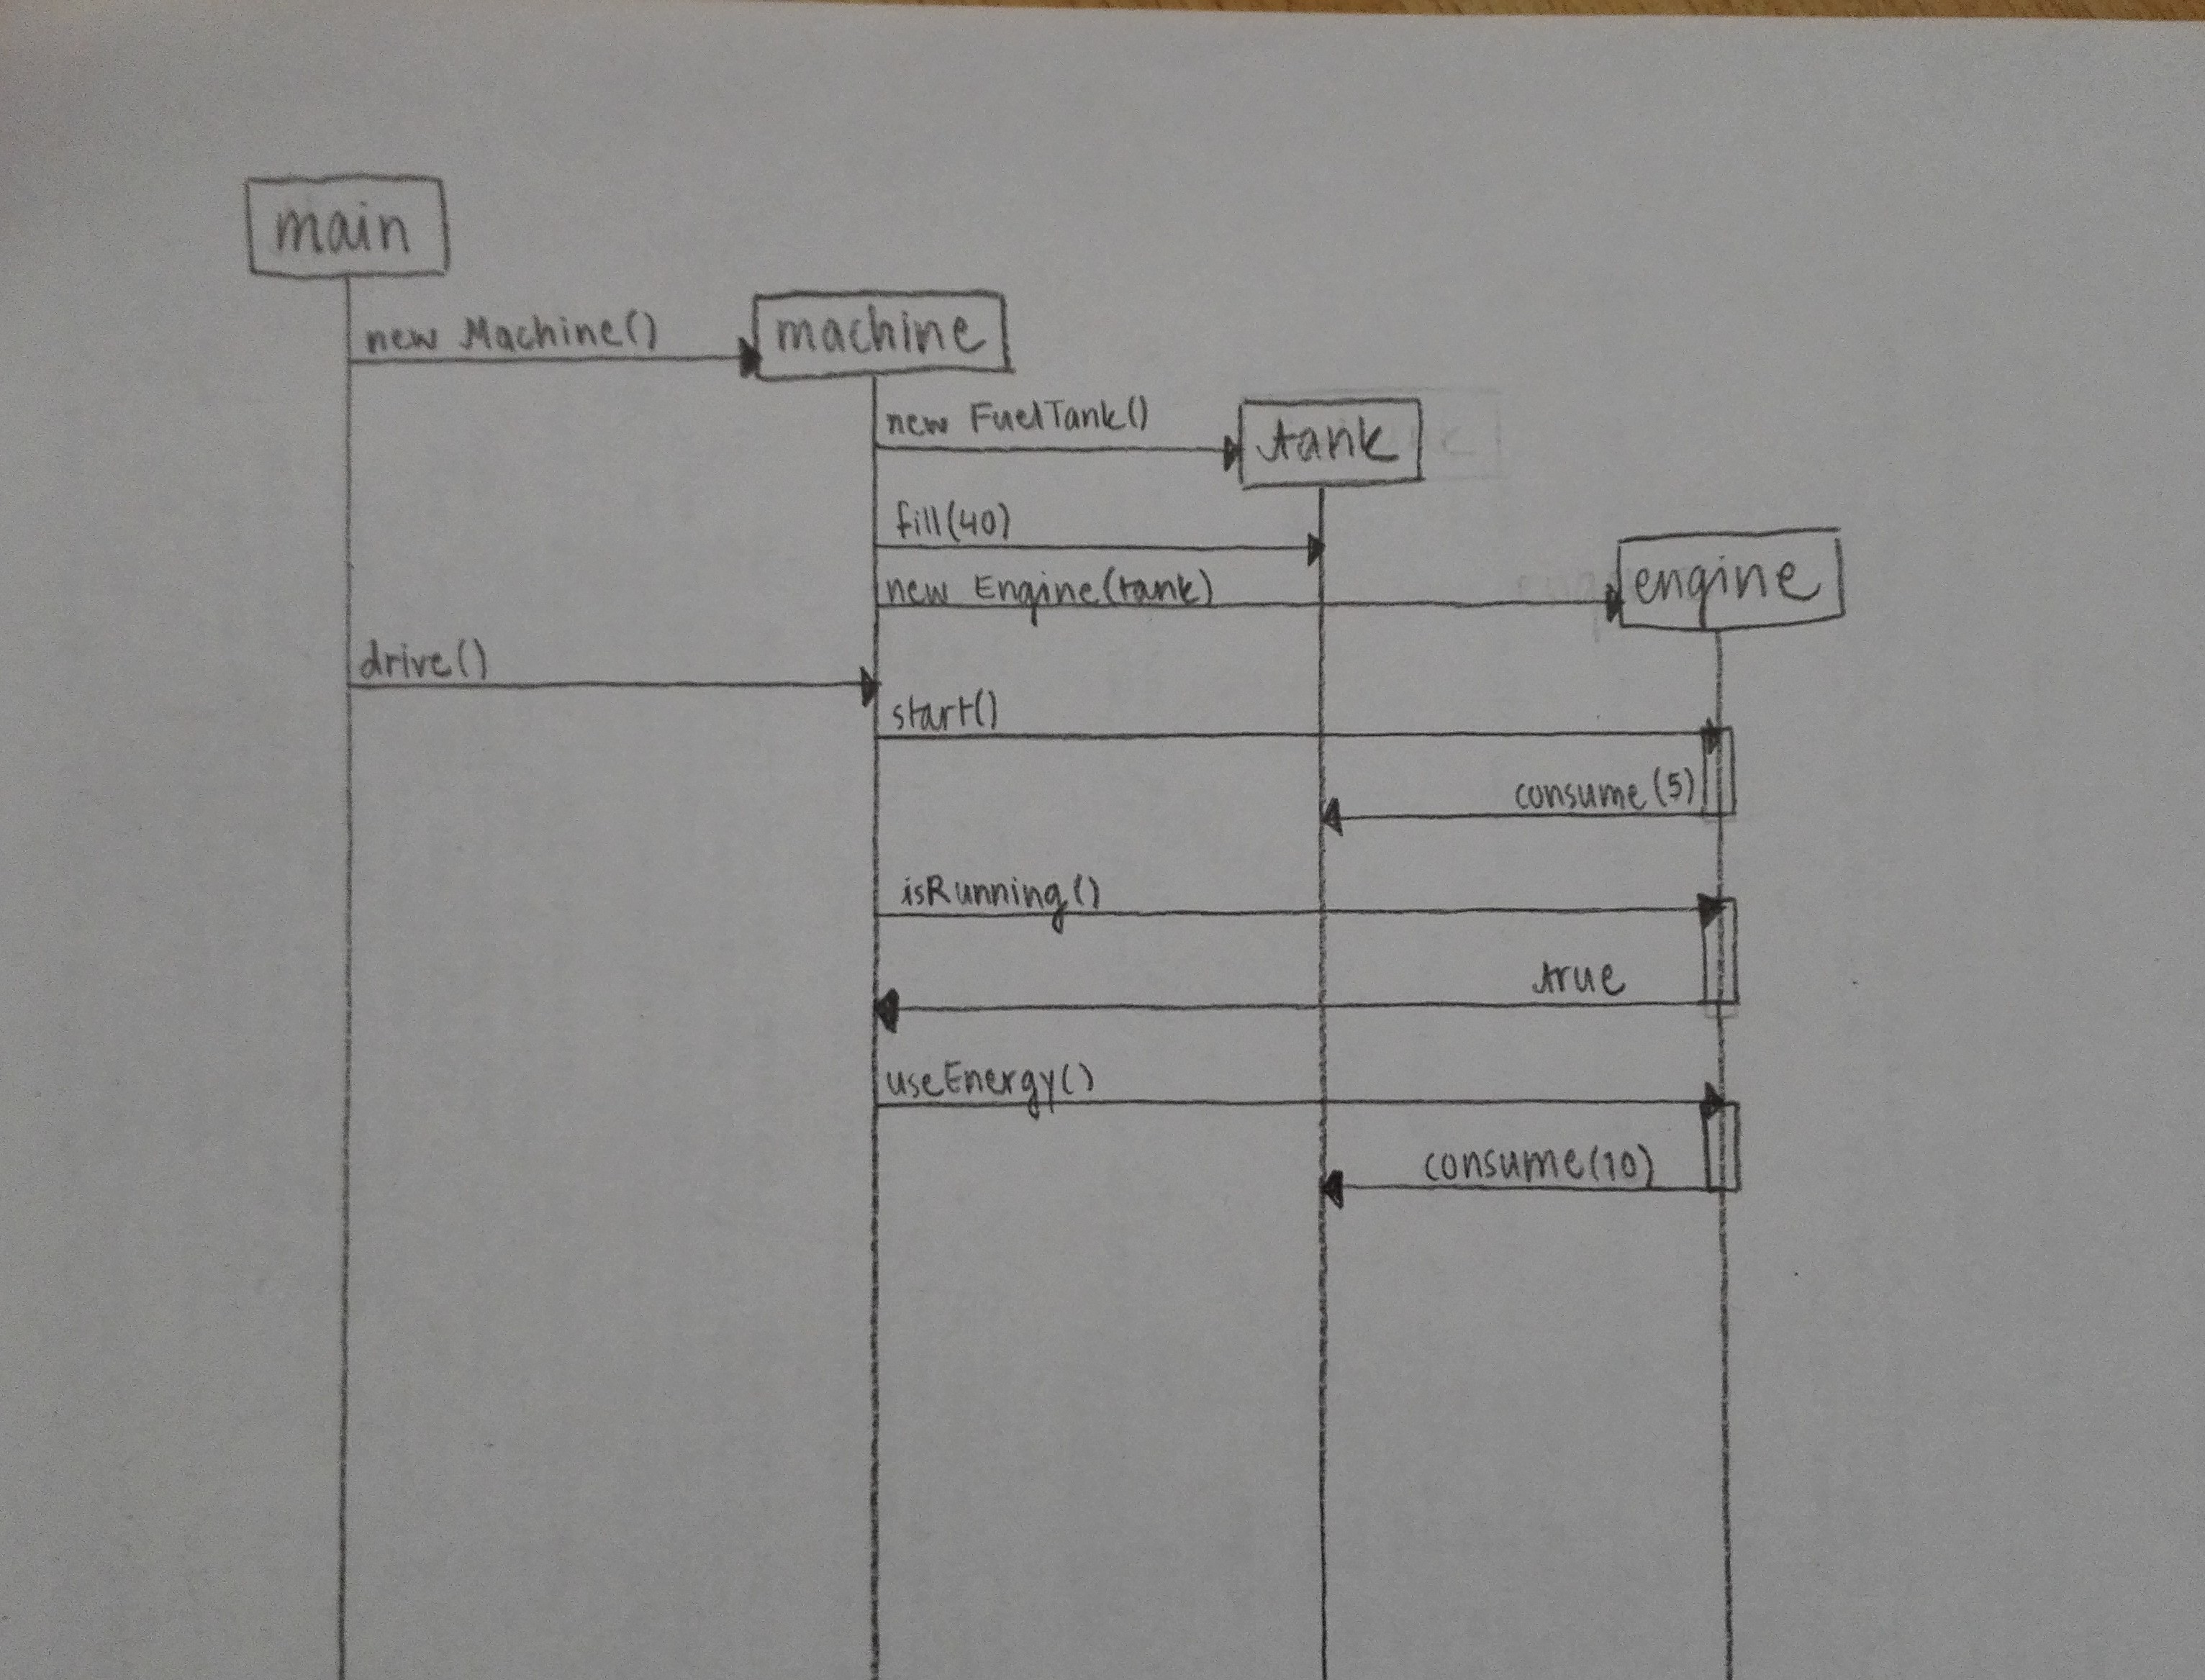 main
new Machine()
machine
new FuelTank()
tank
fill(40)
new Engine(tank)
engine
drive()
start()
consume(5)
isRunning()
true
useEnergy()
consume(10)